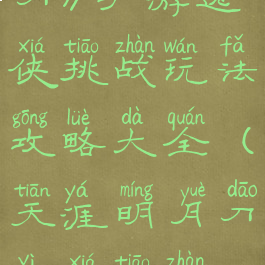 xiá tiāo zhàn wán fǎ
侠挑战玩法
gōng lüè dà quán
攻略大全（
tiān yá míng yuè dāo
天涯明月刀
yì xiá tiāo zhàn